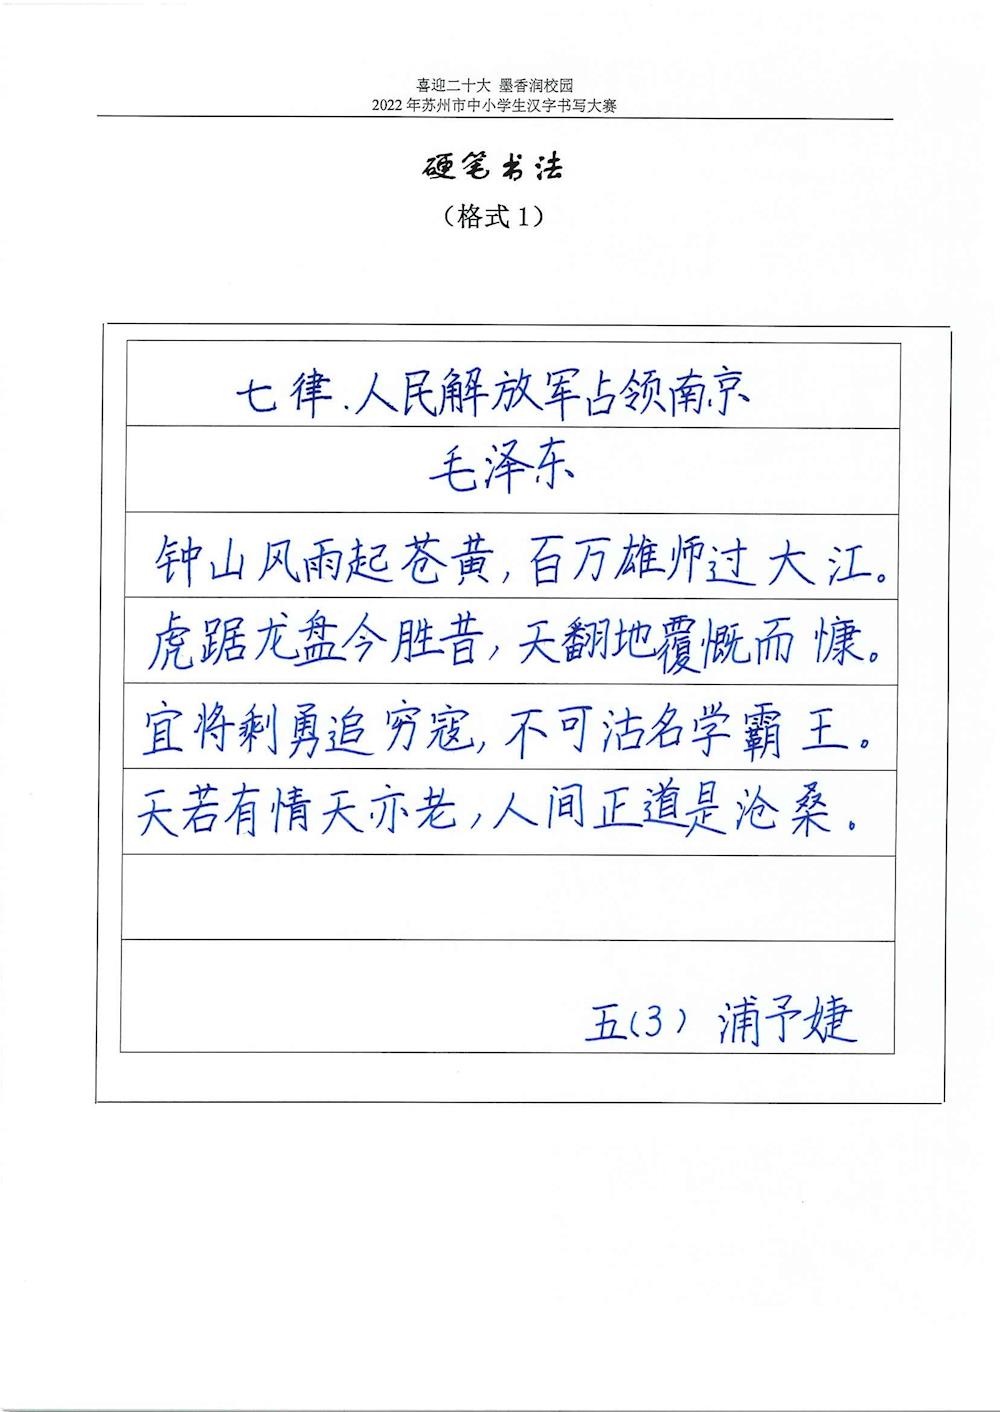 喜迎二十大 墨香润校园
2022年苏州市中小学生汉字书写大赛
硬笔书法
（格式1）
七律.人民解放军占领南京
毛泽东
钟山风雨起苍黄,百万雄师过大江。
虎踞龙盘今胜昔,天翻地覆慨而慷。
宜将剩勇追穷寇,不可沽名学霸王。
天若有情天亦老,人间正道是沧桑。
五(3) 浦予婕